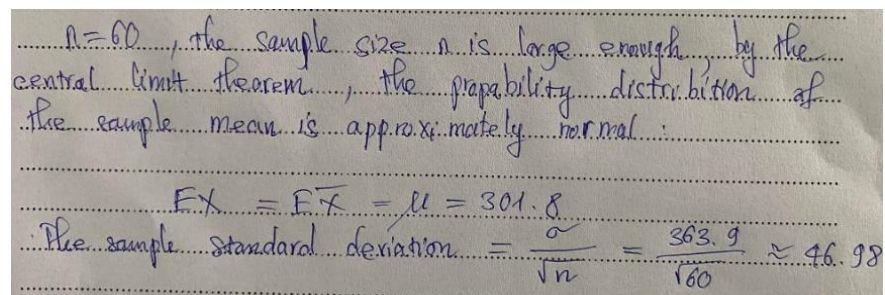 n=60, the sample size n is large enough, by the
central limit theorem, the propability distribution of
the sample mean is approximately normal :
EX = EX̅ = μ = 301.8
The sample standard deviation = σ/√n = 363.9/√60 ≈ 46.98